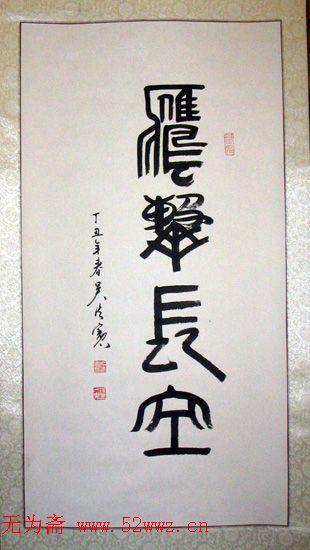 鷹擊長空
丁丑年春吴法憲
无为斋 www.52wwz.cn